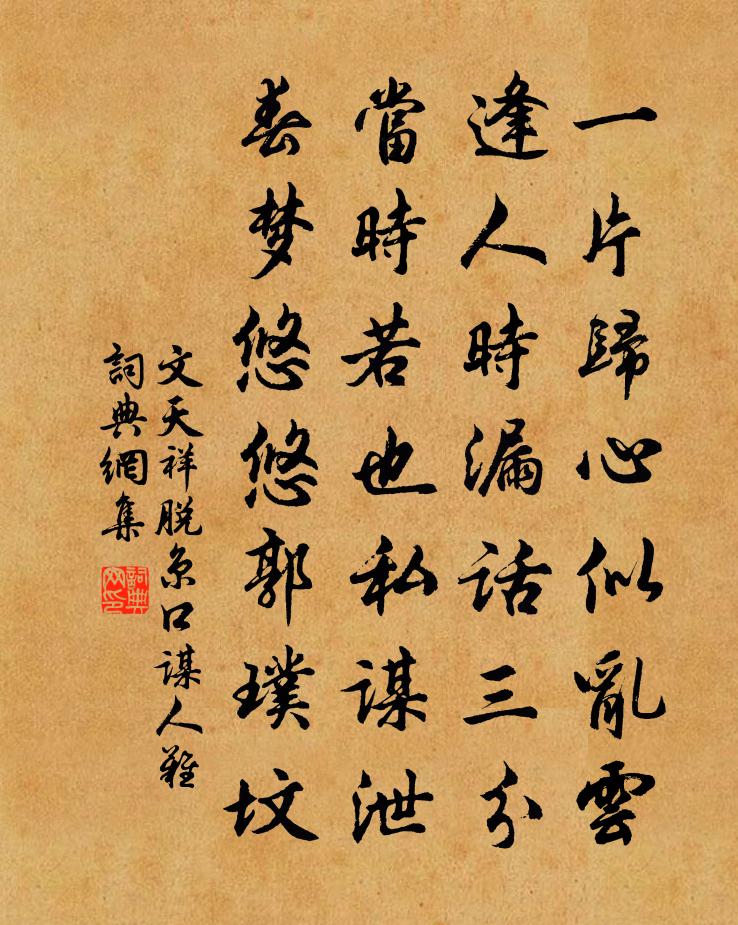 一片歸心似亂雲
逢人時漏話三分
當時若也私謀泄
春梦悠悠郭璞坟
文天祥脱京口謀人難
詞典網集
詞典网印